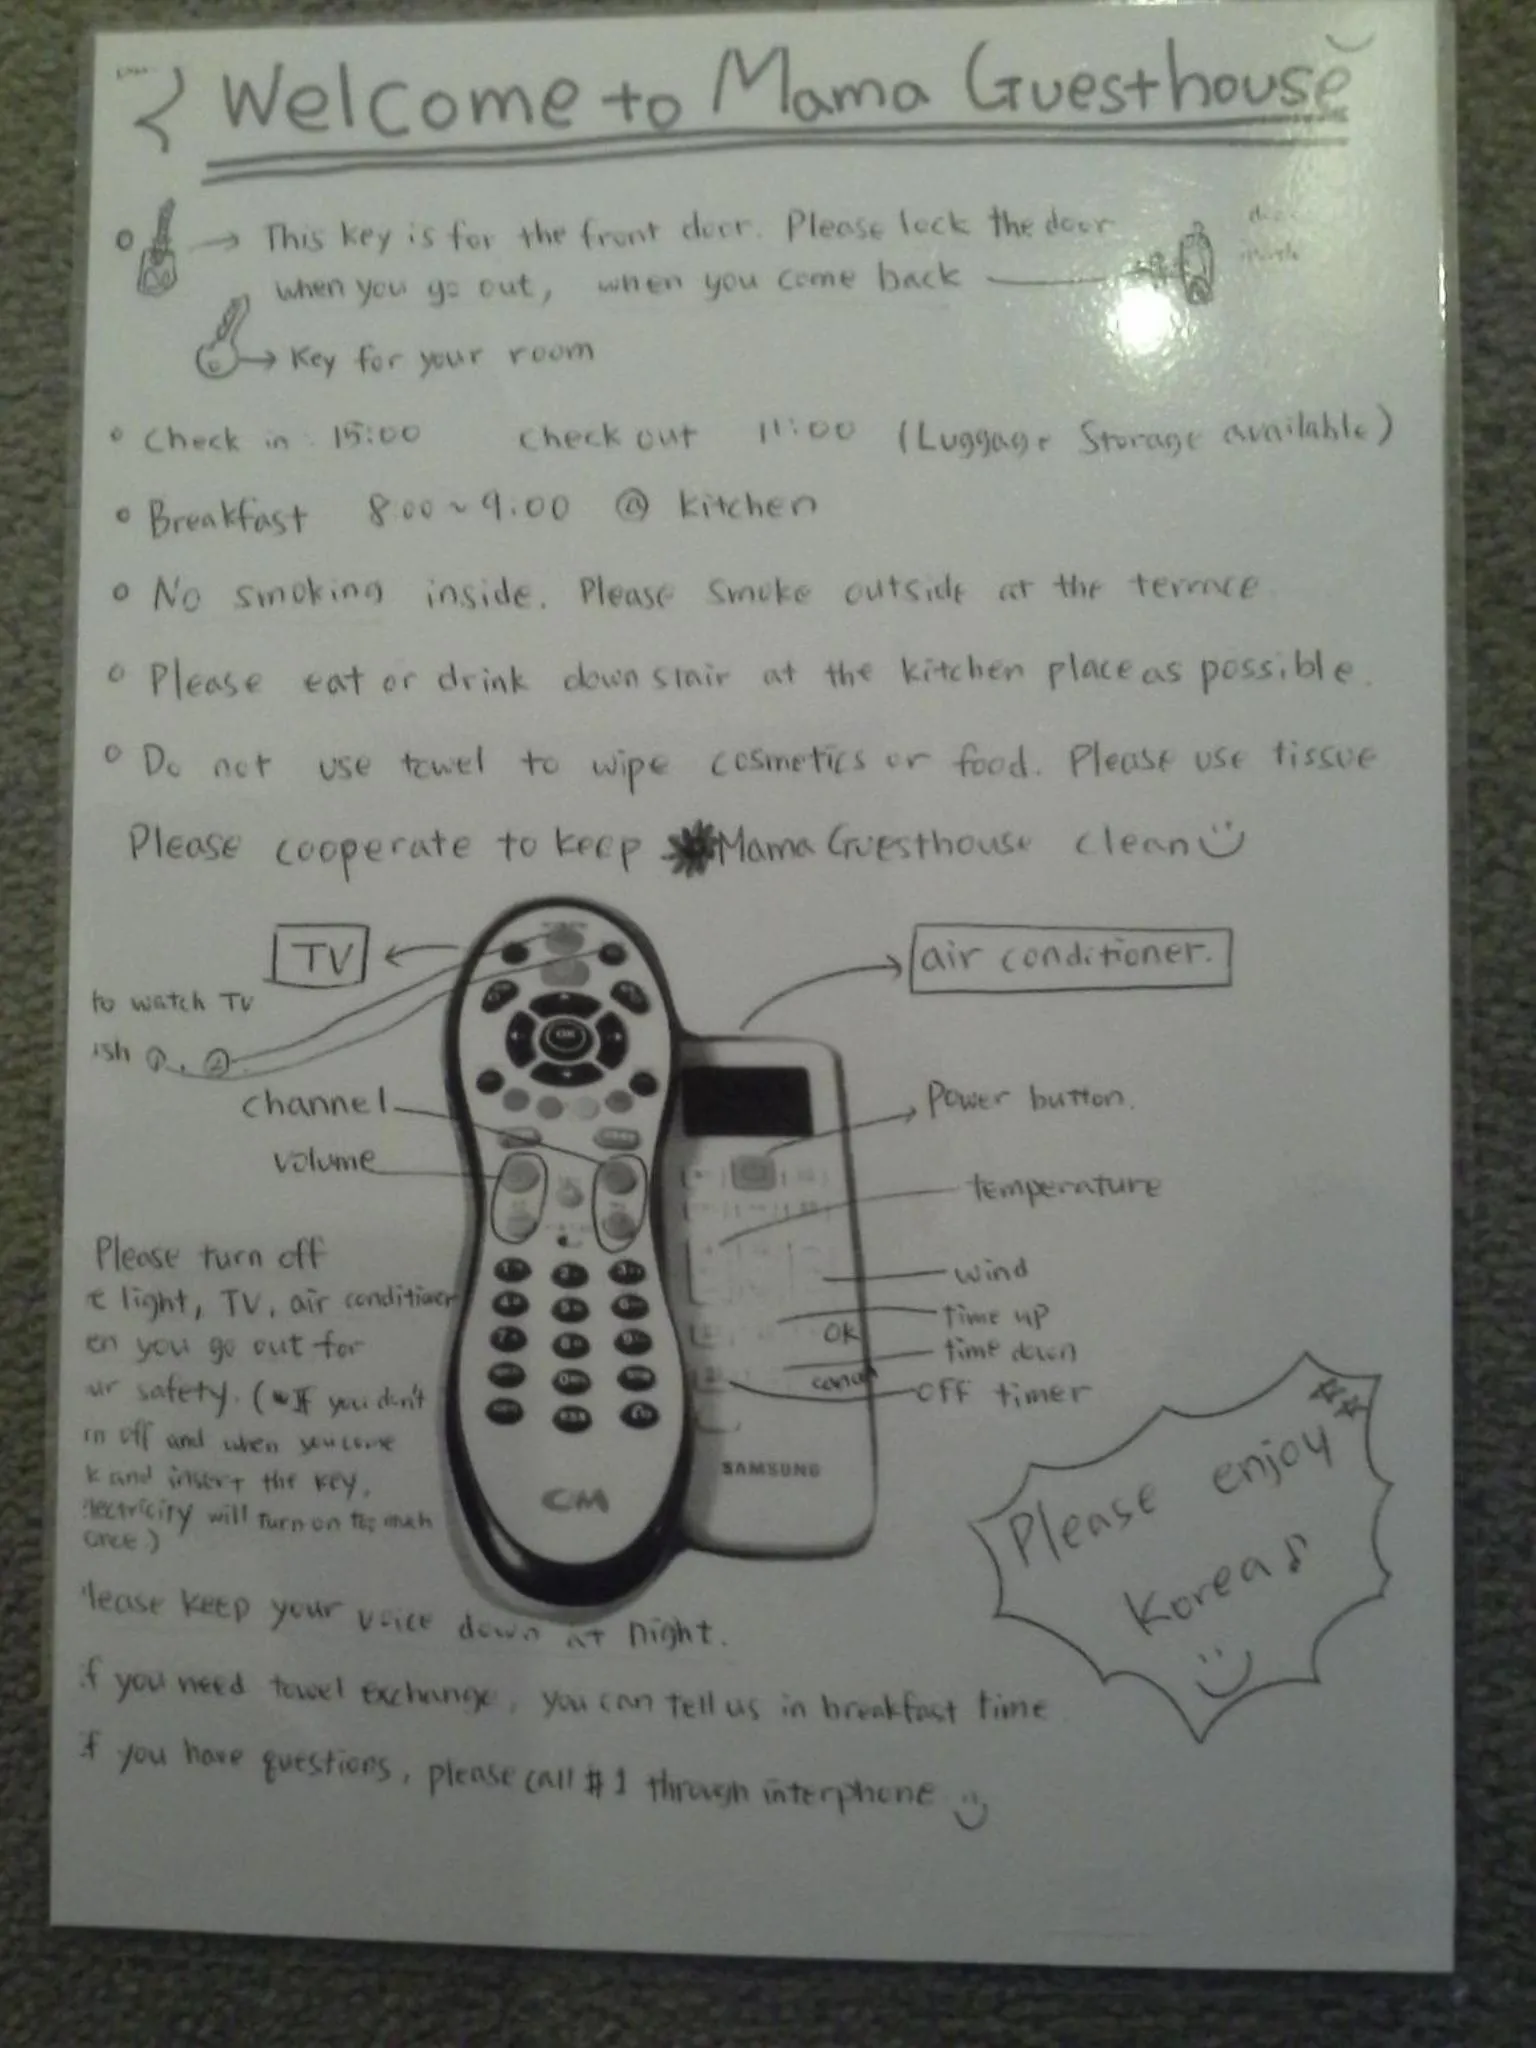 Welcome to Mama Guesthouse
This key is for the front door. Please lock the door
when you go out, when you come back
Key for your room
Check in : 15:00 check out 11:00 (Luggage Storage available)
Breakfast 8:00 ~ 9:00 @ kitchen
No smoking inside. Please smoke outside at the terrace
Please eat or drink down stair at the kitchen place as possible.
Do not use towel to wipe cosmetics or food. Please use tissue
Please cooperate to keep Mama Guesthouse clean
TV
air conditioner.
to watch TV
ish ①, ②
OK
channel
volume
Power button.
temperature
wind
time up
OK
time down
cancel
OFF timer
SAMSUNG
CJM
Please turn off
e light, TV, air conditioner
en you go out for
ur safety. (If you don't
rn off and when you come
k and insert the key,
lectricity will turn on too much
once)
Please enjoy
Korea♪
lease keep your voice down at night.
if you need towel exchange, you can tell us in breakfast time
if you have questions, please call #1 through interphone